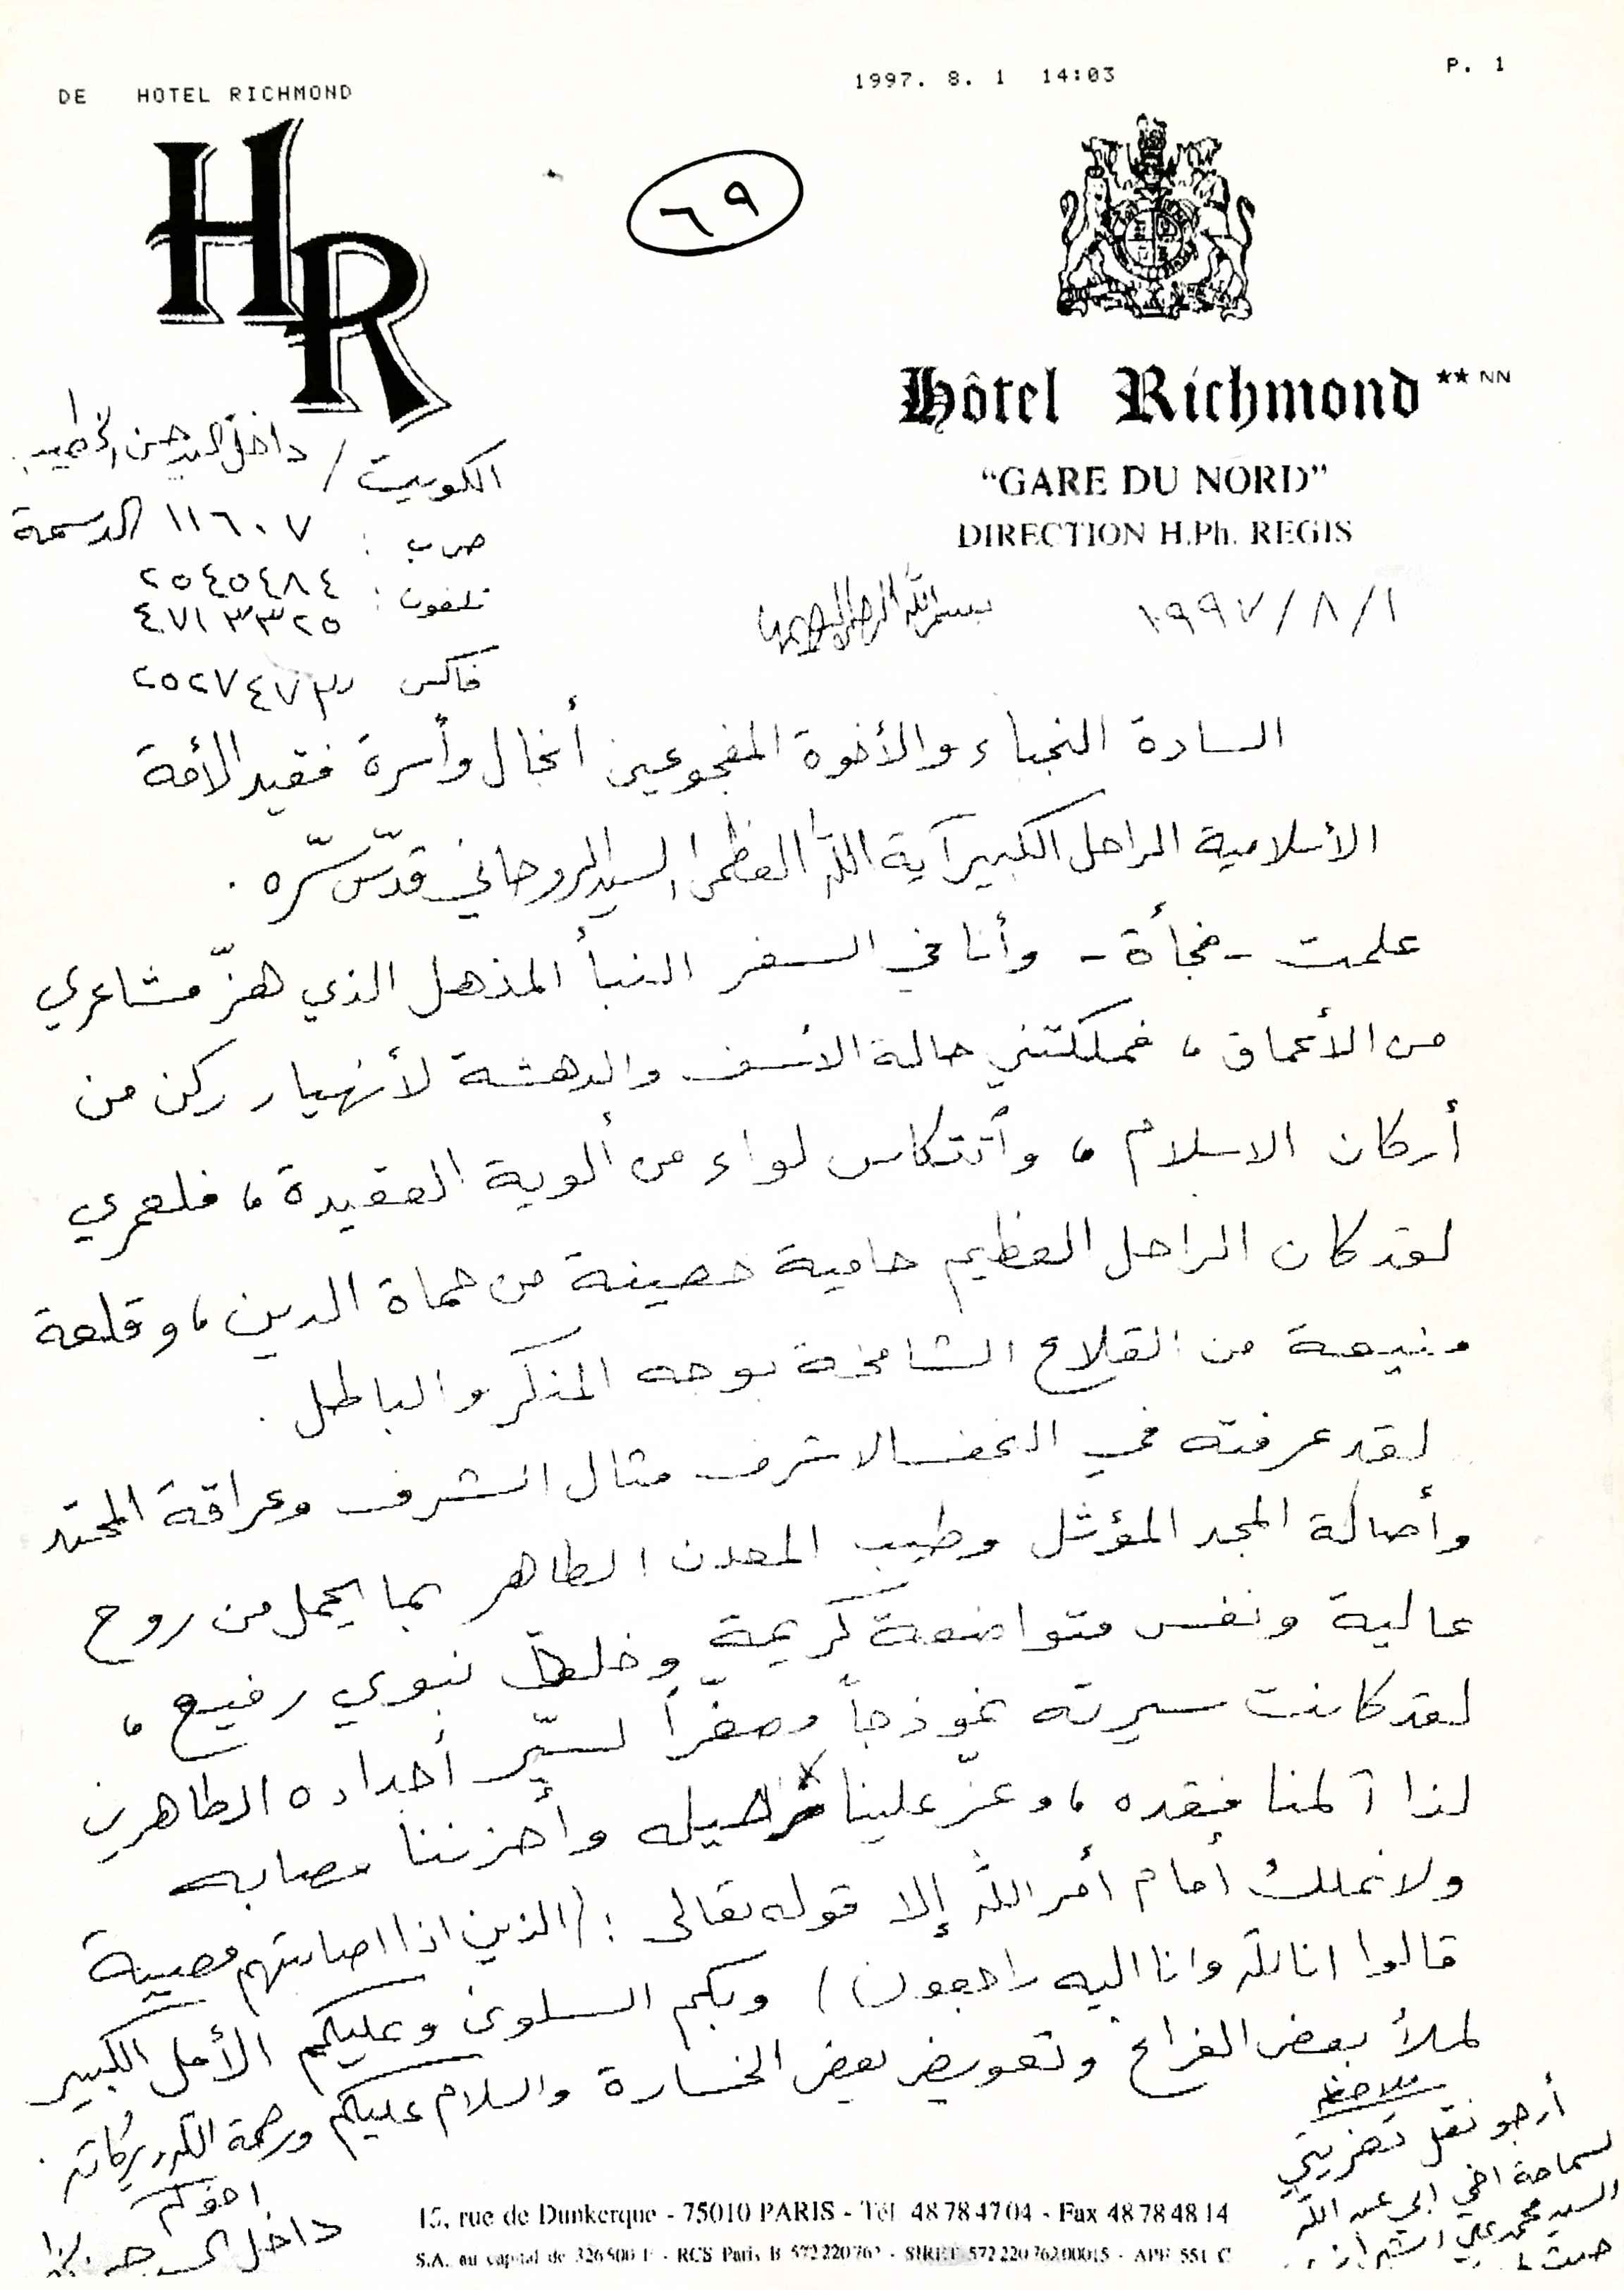 DE HOTEL RICHMOND 1997. 8. 1 14:03 P. 1
HR
٦٩
Hôtel Richmond ** NN
"GARE DU NORD"
DIRECTION H.Ph. REGIS
الكويت / داخل السيد حسن
ص ب : ١١٦٠٧ الدسمة
تلفون : ٢٥٤٥٤٨٤
٤٧١٣٣٢٥
فاكس ٢٥٢٧٤٧٣
١٩٩٧/٨/١
بسم الله الرحمن الرحيم
السادة النجباء والأخوة المفجوعين أنجال وأسرة فقيد الأمة
الأسلامية الراحل الكبير آية الله العظمى السيد الروحاني قدّس سّره .
علمت - فجأة - وأنا في السفر النبأ المذهل الذي هزّ مشاعري
من الأعماق ، فملكتني حالة الأسف والدهشة لأنهيار ركن من
أركان الاسلام ، وأنتكاس لواء من ألوية العقيدة ، فلعمري
لقد كان الراحل العظيم حامية حصينة من حماة الدين ، وقلعة
منيعة من القلاع الشامخة بوجه المنكر والباطل .
لقد عرفته في النجف الاشرف مثال الشرف وعراقة المحتد
وأصالة المجد المؤثل وطيب المعدن الطاهر بما يحمل من روح
عالية ونفس متواضعة كريمة وخلق نبوي رفيع ،
لقد كانت سيرته نموذجاً مصغّراً لسيّر أجداده الطاهرين
لذا آلمنا فقده ، وعزّ علينا رحيله وأحزننا مصابه
ولا نملك أمام أمر الله إلا قوله تعالى : (الذين اذا اصابتهم مصيبة
قالوا انا لله وانا اليه راجعون) وبكم السلوى وعليكم الأمل الكبير
لملأ بعض الفراغ وتعويض بعض الخسارة والسلام عليكم ورحمة الله وبركاته .
اخوكم
داخل السيد حسن
ملاحظة
أرجو نقل تعزيتي
لسماحة اخي ابي عبد الله
السيد محمد علي الشيرازي
15, rue de Dunkerque - 75010 PARIS - Tél 48 78 47 04 - Fax 48 78 48 14
S.A. au capital de 326 500 F - RCS Paris B 572 220 762 - SIRET 572 220 762 00015 - APE 551 C